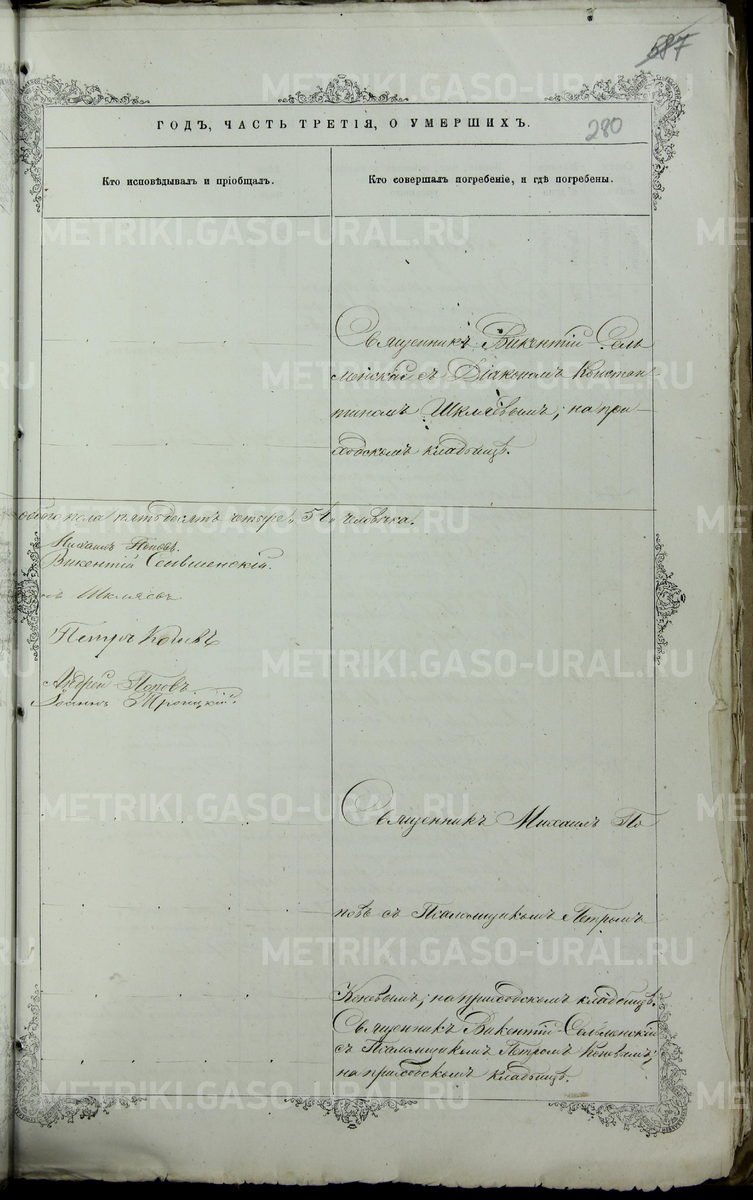 687
280
ГОДЪ, ЧАСТЬ ТРЕТІЯ, О УМЕРШИХЪ.
Кто исповѣдывалъ и пріобщалъ.
Кто совершалъ погребеніе, и гдѣ погребены.
Священникъ Викентій Сель
менскій съ Діакономъ Констан-
тиномъ Шкляевымъ; на при-
ходскомъ кладбищѣ.
обоего пола пятьдесятъ четыре 54 человѣка.
Михаилъ Поповъ.
Викентій
ъ Шкляевъ
Петръ Коневъ
Андрей Поповъ.
Іоаннъ Троицкій.
Священникъ Михаилъ По
повъ съ Псаломщикомъ Петромъ
Коневымъ; на приходскомъ кладбищѣ.
Священникъ Викентій Сельменскій
съ Псаломщикомъ Петромъ Коневымъ;
на приходскомъ кладбищѣ.
METRIKI.GASO-URAL.RU